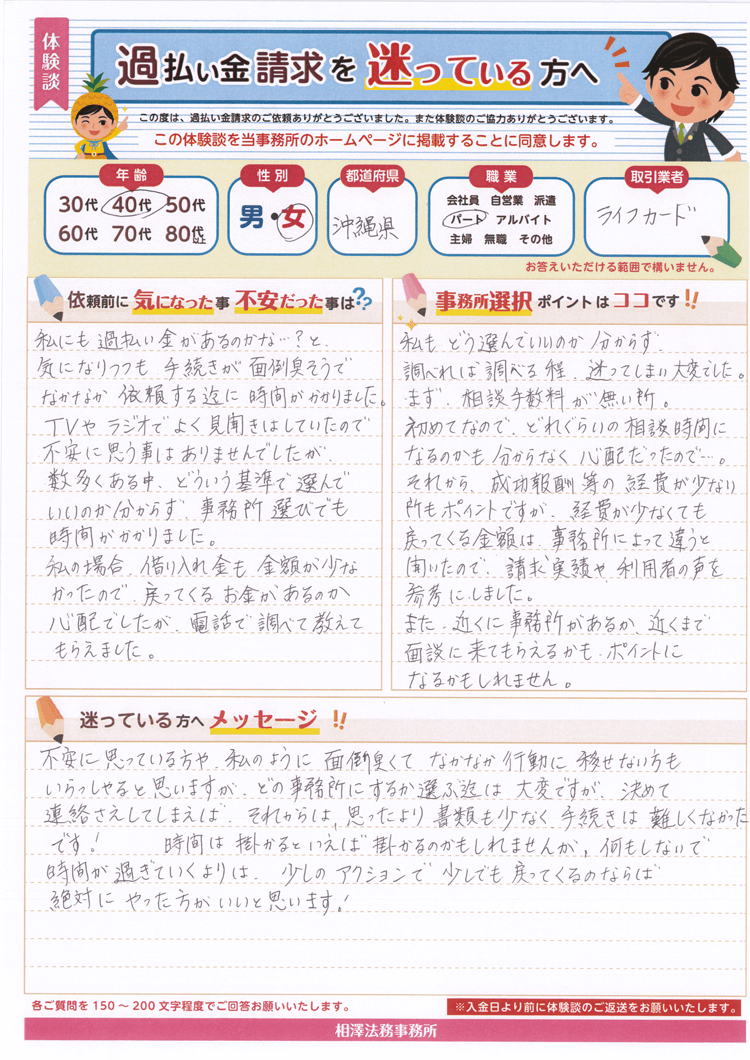 体験談
過払い金請求を迷っている方へ
この度は、過払い金請求のご依頼ありがとうございました。また体験談のご協力ありがとうございます。
この体験談を当事務所のホームページに掲載することに同意します。
年齢
30代 40代 50代
60代 70代 80代以上
性別
男・女
都道府県
沖縄県
職業
会社員 自営業 派遣
パート アルバイト
主婦 無職 その他
取引業者
ライフカード
お答えいただける範囲で構いません。
依頼前に気になった事 不安だった事は??
私にも過払い金があるのかな…?と、
気になりつつも 手続きが面倒臭そうで
なかなか 依頼する迄に 時間がかかりました。
TVや ラジオで よく見聞きはしていたので
不安に思う事はありませんでしたが、
数多くある中、どういう基準で選んで
いいのか分からず、事務所選びでも
時間がかかりました。
私の場合、借り入れ金も 金額が少な
かったので、戻ってくる お金があるのか
心配でしたが、電話で調べて教えて
もらえました。
事務所選択ポイントはココです!!
私も どう選んでいいのか 分からず、
調べれば調べる程、迷ってしまい大変でした。
まず、相談手数料が無い所。
初めてなので、どれぐらいの相談時間に
なるのかも分からなく心配だったので…。
それから、成功報酬等の 経費が少ない
所もポイントですが、経費が少なくても
戻ってくる金額は、事務所によって違うと
聞いたので、請求実績や、利用者の声を
参考にしました。
また、近くに事務所があるか、近くまで
面談に来てもらえるかも、ポイントに
なるかもしれません。
迷っている方へメッセージ!!
不安に思っている方や、私のように 面倒臭くて なかなか行動に 移せない方も
いらっしゃると思いますが、どの事務所にするか選ぶ迄は 大変ですが、決めて
連絡さえしてしまえば、それからは、思ったより 書類も少なく、手続きは 難しくなかった
です! 時間は掛かるといえば掛かるのかもしれませんが、何もしないで
時間が過ぎていくよりは、少しのアクションで少しでも戻ってくるのならば
絶対に やった方がいいと思います!
各ご質問を150～200文字程度でご回答お願いいたします。
※入金日より前に体験談のご返送をお願いいたします。
相澤法務事務所